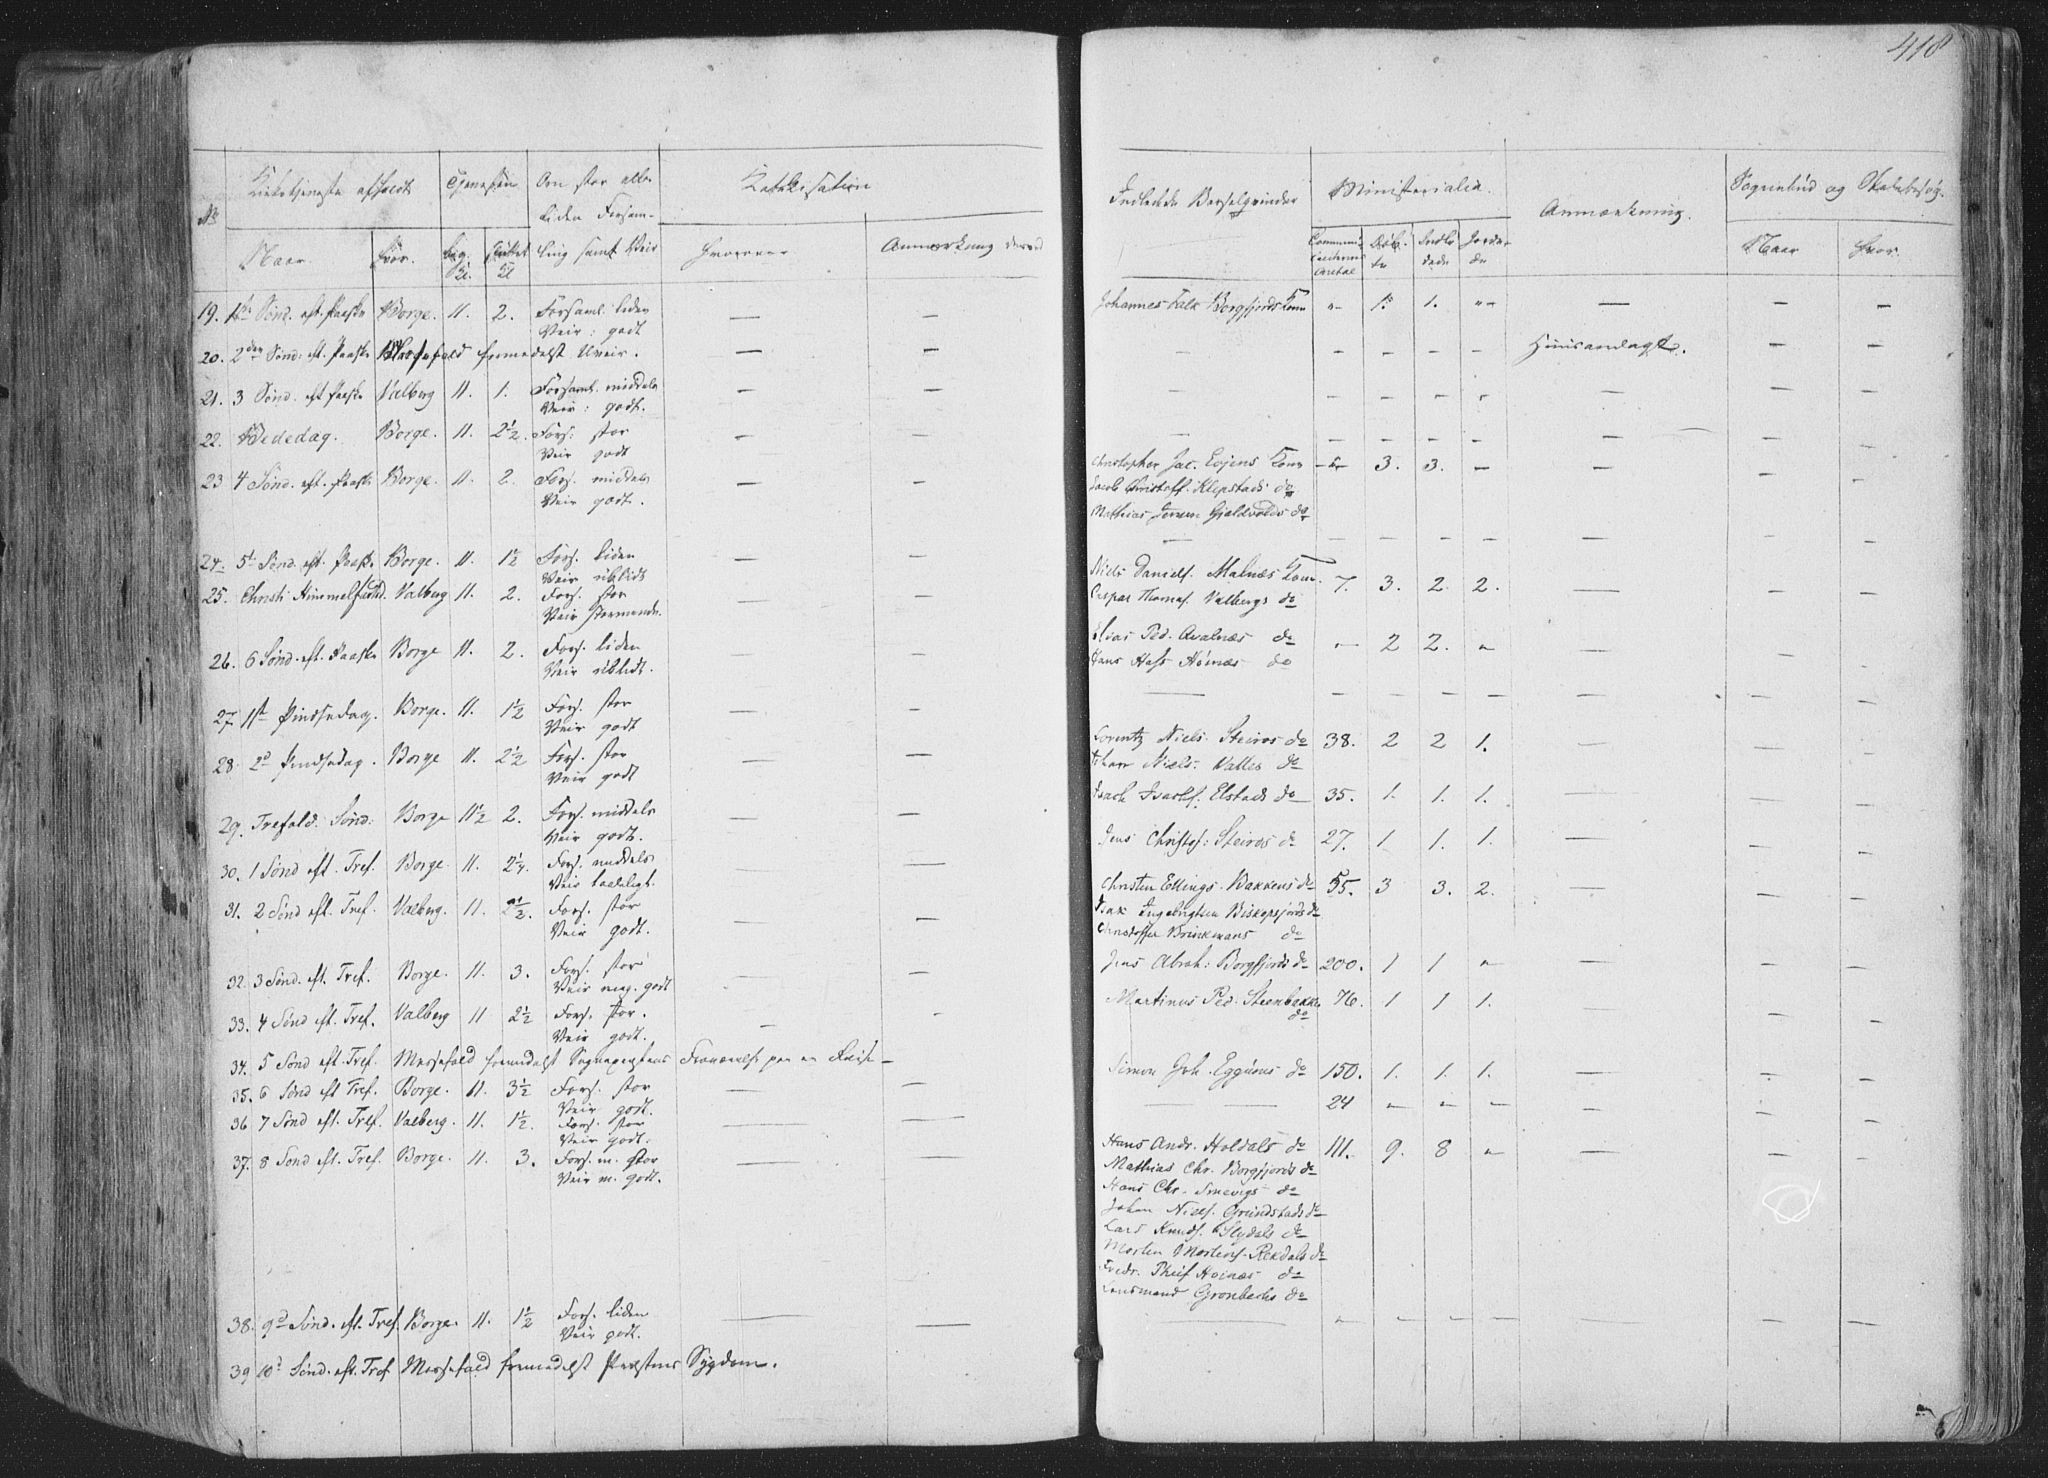 418
No
Kirketjeneste afholdt
Tjenesten
Om stor eller
liden Forsam-
ling samt Veir
Katekisation
Naar.
Hvor.
beg.
Kl.
sluttet
Kl
Hvorover
Anmærkning derved
Indledede Barselqvinder
Ministerialia.
Anmærkning.
Sognebud og Skolebesøg.
Communi-
canternes
Antal
Døb-
te
Indle
dede
Jorde-
de
Naar
Hvor.
19. 1ste Sønd. eft. Paaske Borge. 11. 2. Forsaml. liden — —
Veir: godt
Johannes Falk Borgfjords Kone „ 1. 1. „ — — —
20. 2den Sønd: eft. Paaske Messefald formedelst Uveir. — —
— — — — — Huusandagt. — —
21. 3 Sønd. eft Paaske Valberg 11. 1. Forsaml. middels — —
Veir: godt.
— — — — — — — —
22. Bededag. Borge. 11. 2½. Fors: stor — —
Veir godt
— — — — — — — —
23 4 Sønd. eft. Paaske Borge. 11. 2. Fors. middels — —
Veir godt.
Christopher Jac. Eojens Kone — 3. 3. — — — —
Jacob Christoff. Klepstads do
Mathias Jensen Gjeldvolds do
24. 5te Sønd. eft. Paaske Borge. 11. 1½ Fors. liden — —
Veir ublidt
— — — — — — — —
25. Christi Himmelfartsd. Valberg 11. 2. Fors. stor — —
Veir stormende.
Niels Daniels. Malnæs Kone. 7. 3. 2. 2. — — —
Caspar Thomas. Valbergs do
26. 6 Sønd. eft. Paaske Borge 11. 2. Fors. liden — —
Veir ublidt.
Elias Ped. Avalnæs do „ 2 2. „ — — —
Hans Hass Høinæs do
27. 1ste Pindsedag. Borge. 11. 1½ Fors. stor — —
Veir godt
— — — — — — — —
28. 2den Pindsedag. Borge 11. 2½ Fors. stor — —
Veir godt
Lorentz Niels. Steiros do 38. 2 2 1. — — —
Niels. Valles do
29. Trefold. Sønd: Borge 11½ 2. Fors. middels — —
Veir godt.
Isach Isachs. Elstads do 35. 1. 1. 1. — — —
30. 1 Sønd eft. Tref. Borge. 11. 2¼. Fors. middels — —
Veir taaleligt.
Jens Christof: Steiros do 27. 1 1. 1. — — —
31. 2 Sønd eft. Tref. Valberg. 11. 2½. Fors. stor — —
Veir godt.
Christen Ellings. Bakkens do 55. 3 3. 2. — — —
Isak Ingebrigtsen Biskopsfjords do
Christoffer Brinkmans do
32. 3 Sønd. eft. Tref. Borge. 11. 3. Fors. stor — —
Veir meg. godt
Jens Abrah: Borgfjords do 200. 1 1 „ — — —
33. 4 Sønd eft. Tref. Valberg 11 2½ Fors. stor. — —
Veir godt.
Martinus Ped. Steenbakke 76. 1 1 1. — — —
do
34. 5 Sønd eft. Tref. Messefald formedelst Sognepræstens Fraværelse paa en Reise —
35. 6 Sønd eft Tref. Borge. 11. 3½ Fors. stor — —
Veir godt.
Simon Joh. Eggums do 150. 1. 1. 1. — — —
36 7 Sønd eft. Tref. Valberg. 11. 1½. Fors. stor — —
Veir godt.
— 24 „ „ — — — —
37. 8 Sønd eft. Tref. Borge. 11. 3. Fors. m. stor — —
Veir m. godt.
Hans Andr. Holdals do 111. 9. 8 „ — — —
Mathias Chr. Borgfjords do
Hans Chr. Smevigs do
Johan Niels. Grundstads do
Lars Knuds. Slydals do
Morten Mortens. Rekdals do
Fredr. Høinæs do
Lensmand Grønbechs do
38. 9de Sønd. eft. Tref. Borge. 11. 1½ Fors. liden — —
Veir godt.
— — — — — — — —
39 10de Sønd. eft. Tref Messefald formedelst Præstens Sygdom.